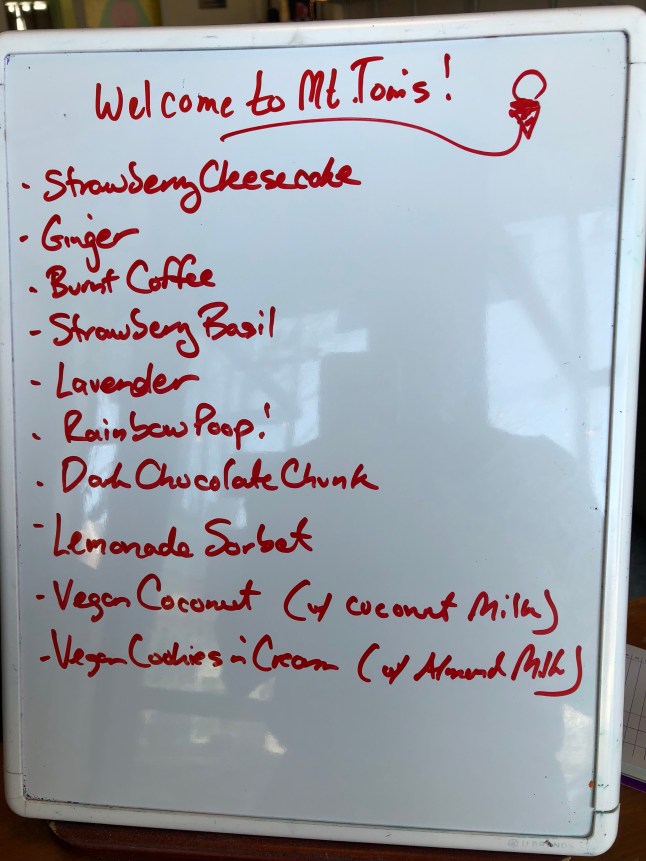 Welcome to Mt. Tom's!
· Strawberry Cheesecake
· Ginger
· Burnt Coffee
- Strawberry Basil
- Lavender
· Rainbow Poop!
· Dark Chocolate Chunk
- Lemonade Sorbet
- Vegan Coconut (w/ coconut Milk)
- Vegan Cookies n Cream (w/ Almond Milk)